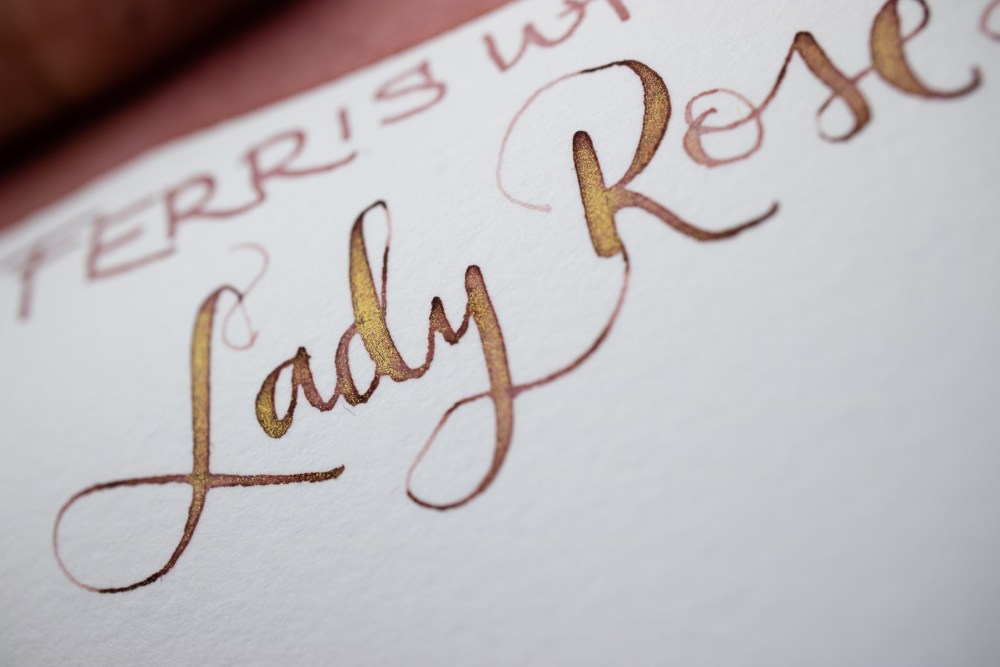 FERRIS
Lady Rose